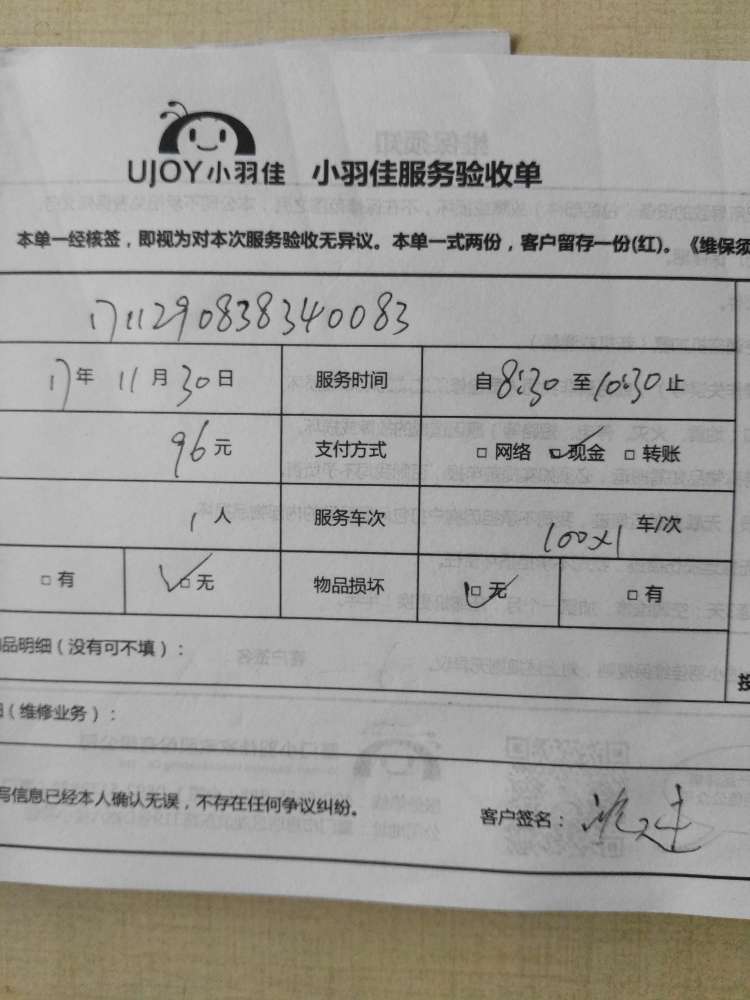 UJOY小羽佳 小羽佳服务验收单
本单一经核签，即视为对本次服务验收无异议。本单一式两份，客户留存一份(红)。《维保须
171129083834 0083
17年 11月30日 服务时间 自8:30至10:30止
96元 支付方式 □网络 ☑现金 □转账
1人 服务车次 100×1 车/次
□有 ☑无 物品损坏 ☑无 □有
品明细（没有可不填）：
（维修业务）：
写信息已经本人确认无误，不存在任何争议纠纷。 客户签名：